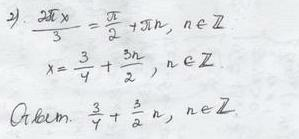 2). 2πx/3 = π/2 + πn, n∈ℤ
x = 3/4 + 3n/2, n∈ℤ.
Ответ. 3/4 + 3/2 n, n∈ℤ